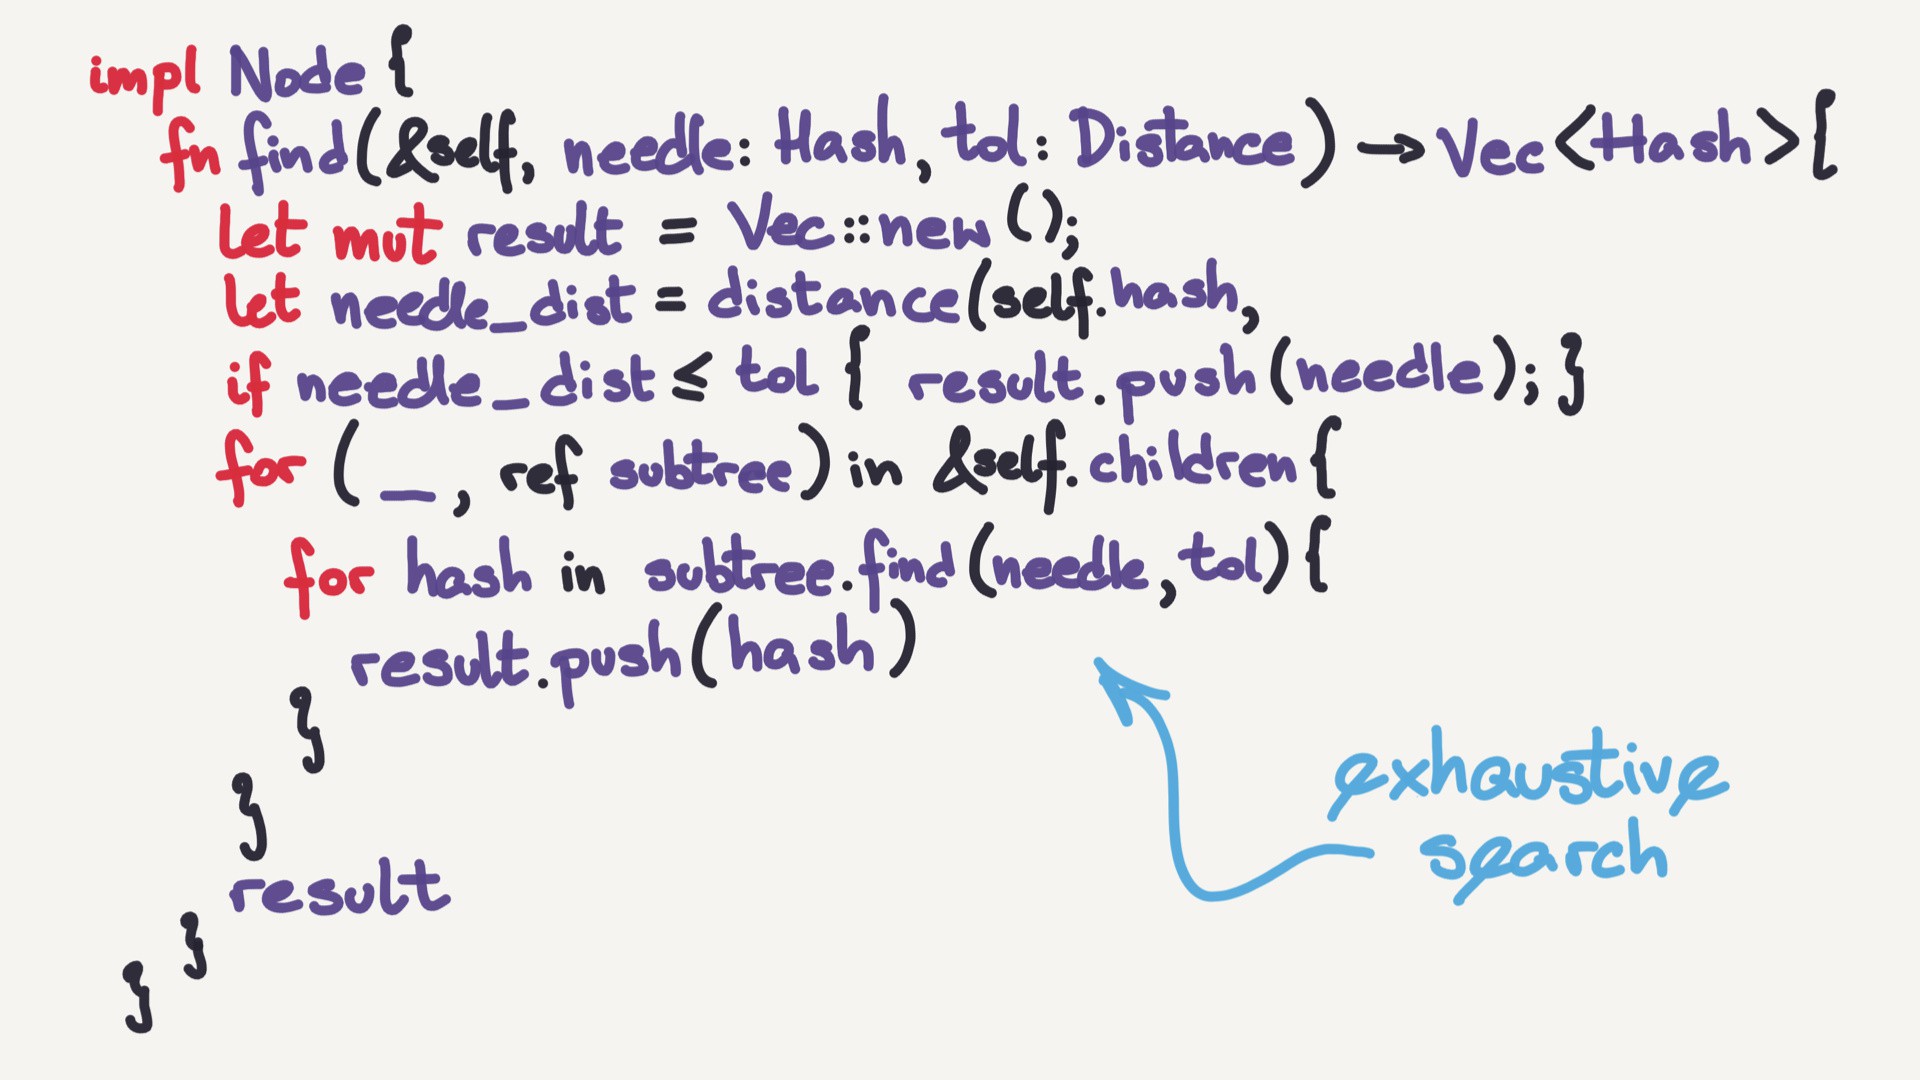 impl Node {
fn find(&self, needle: Hash, tol: Distance) → Vec<Hash>{
let mut result = Vec::new();
let needle_dist = distance(self.hash,
if needle_dist ≤ tol { result.push(needle); }
for (_, ref subtree) in &self.children {
for hash in subtree.find(needle, tol) {
result.push(hash)
}
}
result
}
}
exhaustive
search